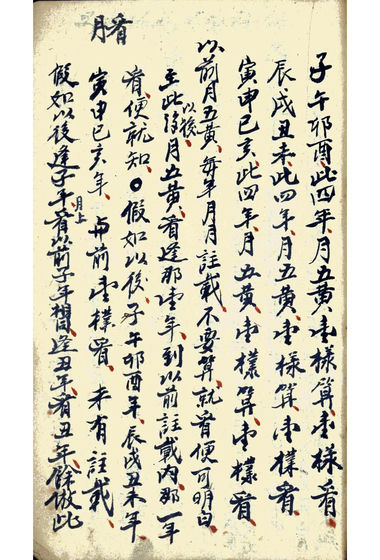 看月
子午卯酉此四年月五黃壹樣算壹樣看
辰戌丑未此四年月五黃壹樣算壹樣看
寅申巳亥此四年月五黃壹樣算壹樣看
以前月五黃每年月月註載不要算就看便可明白
至此後以後月五黃看逢那壹年到以前註載內那一年
看便就知〇假如以後子午卯酉年辰戌丑未年
寅申巳亥年與前壹樣看未有註載
假如以後逢子年月上看以前子年相同逢丑年看丑年餘倣此